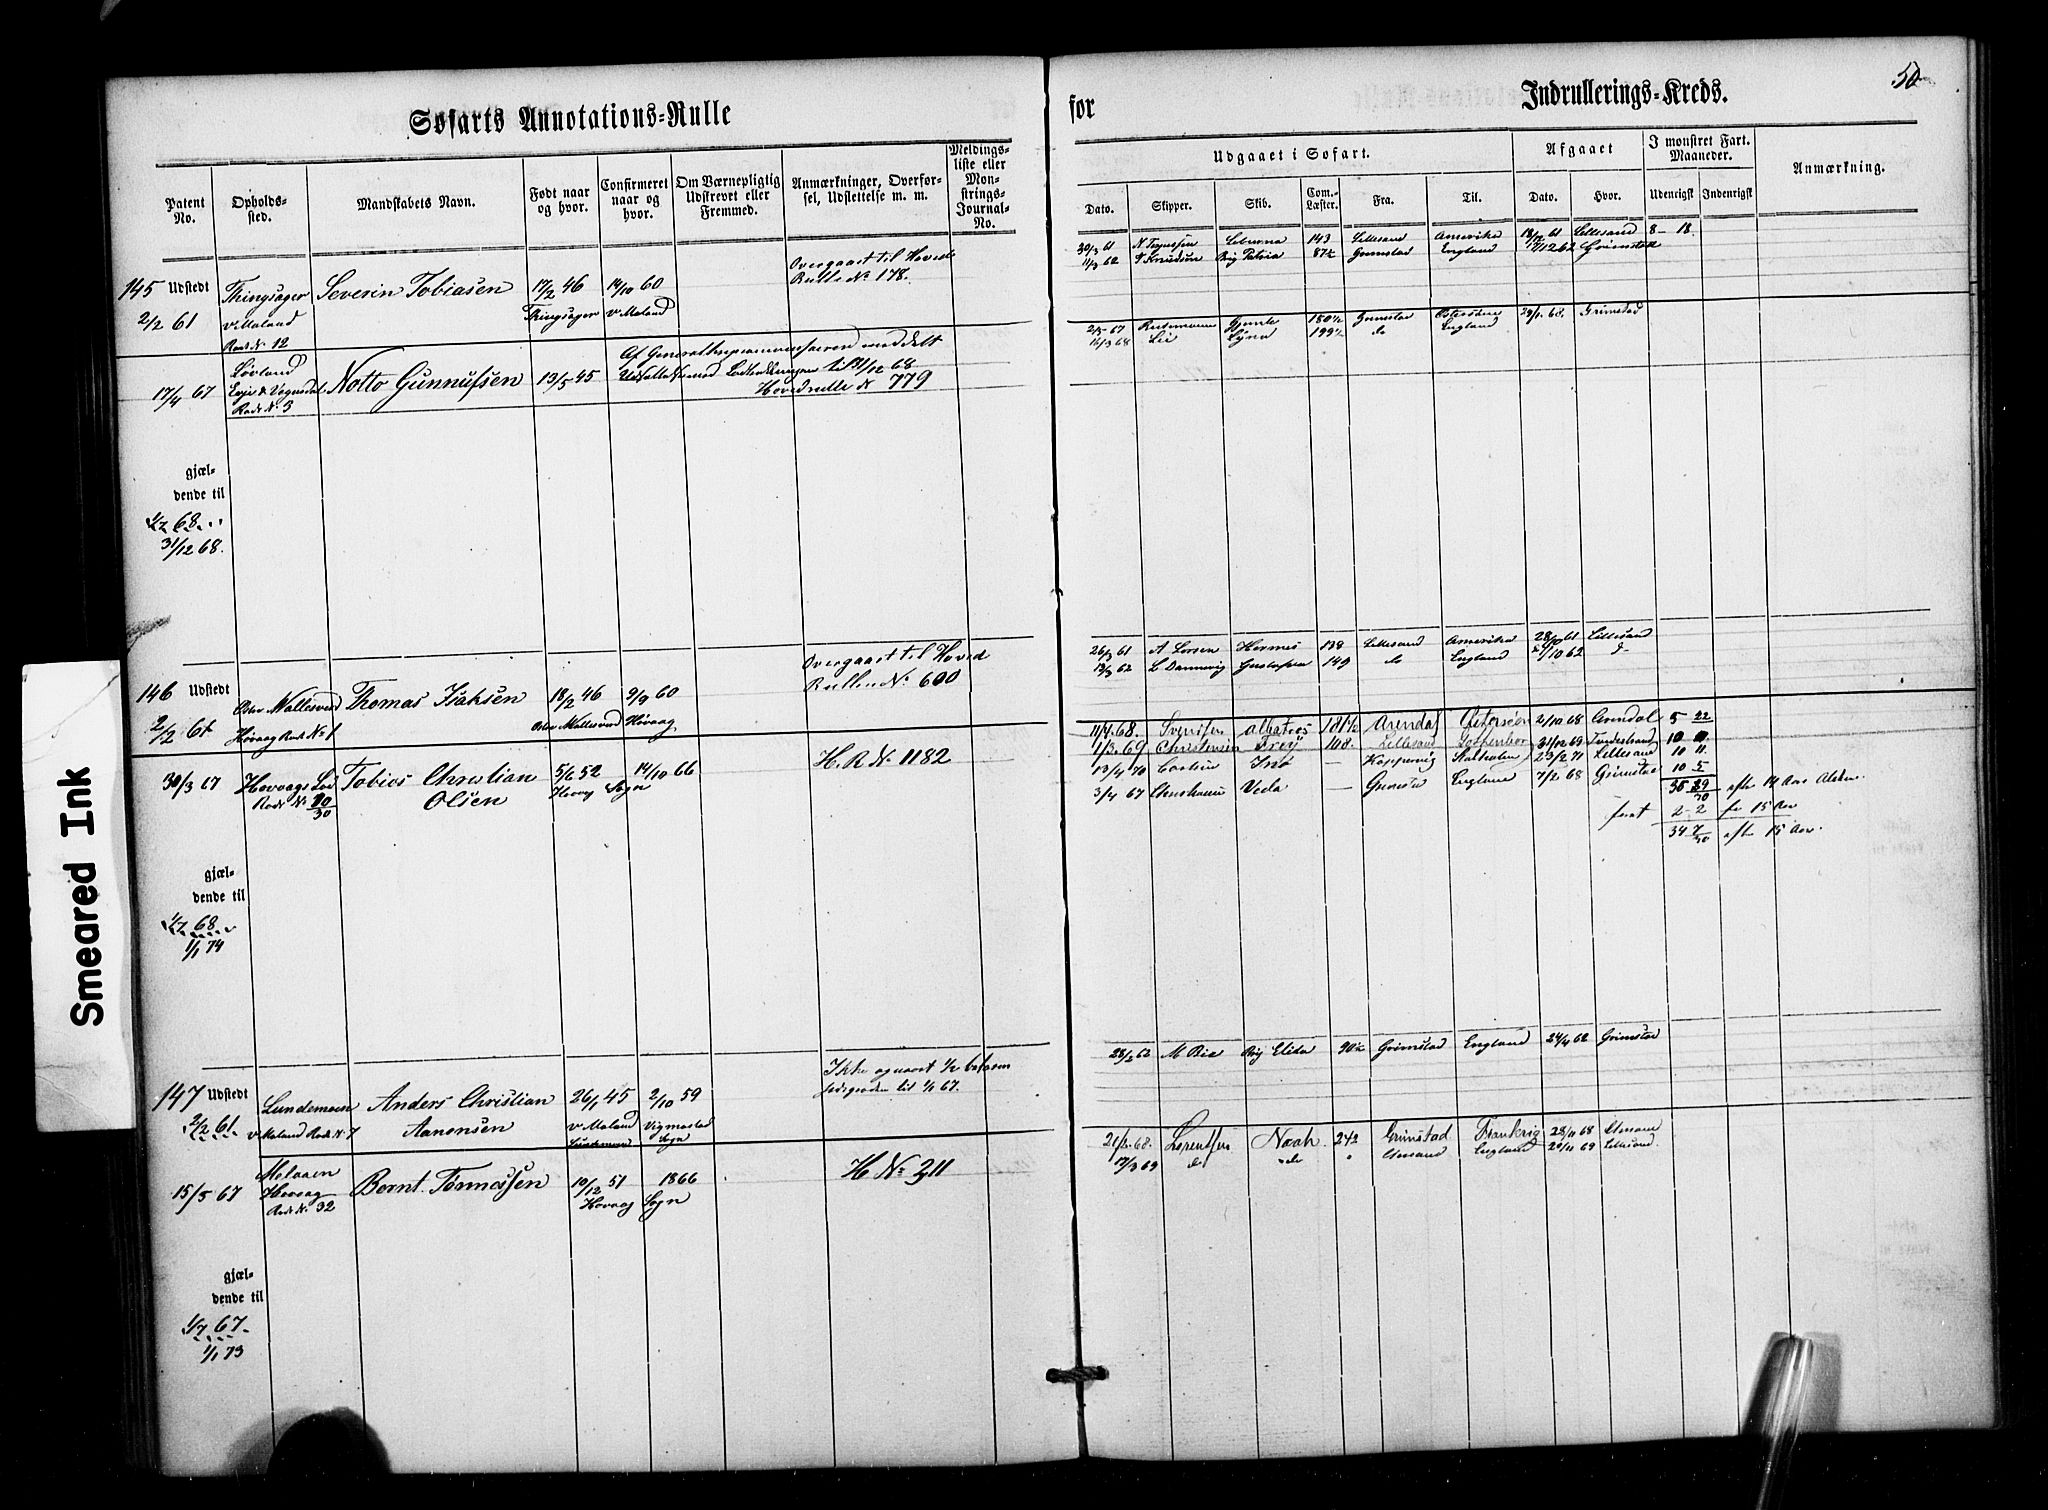 50
Søfarts Annotations=Rulle
for
Indrullerings=Kreds.
Patent No.
Opholds-sted.
Mandskabets Navn.
Født naar og hvor.
Confirmeret naar og hvor.
Om Værnepligtig Udskrevet eller Fremmed.
Anmærkninger, Overførsel, Udslettelse m. m.
Meldings-liste eller Mon-strings-Journal-No.
Udgaaet i Søfart.
Afgaaet
I monstret Fart. Maaneder.
Anmærkning.
Dato. Skipper. Skib. Com.-Læster. Fra. Til. Dato. Hvor. Udenrigst Indenrigst
145 Udstedt
2/2 61
Thingsager
v. Moland
Rode No 12
Severin Tobiasen
17/2 46
Thingsager
14/10 60
v. Moland
Overgaaet til Hoved
Rulle No 178.
30/3 61 N Terjessen 143 Lillesand Amerika 18/12 61 Lillesand 8 - 18
11/3 62 Knudsen Brig Patria 87½ Grimstad England 62 Grimstad
17/4 67
Løvland
Rode No 3
Notto Gunnufsen
13/5 45
68
Hovedrulle No 779
2/5 67 180½ Grimstad Østersøen 29/1 68 Grimstad
16/3 68 Lie 199½ do England
gjæl-
dende til
1/7 68
31/12 68.
146 Udstedt
2/2 61
Øster Vallesverd
Høvaag Rode No 1
Thomas Isaksen
18/2 46
Øster Vallesverd
9/9 60
Høvaag
Overgaaet til Hoved
Rullen No 600
26/3 61 A Larsen Hermes 138 Lillesand Amerika 28/10 61 Lillesand
12/3 62 L Dannevig 149 do England 10 62 do
30/3 67
Hovaags
Rode No 30
Tobias Christian
Olsen
5/6 52
Hovag
14/10 66
Sogn
H. R No 1182
11/4 68. Svensen Albatros 181½ Arendal Østersøen 2/10 68 Arendal 5 22
1/3 69 Christensen Frey 108. Lillesand 31/12 69 Tvedestrand 10
13/4 70 Ino — Koppervig 23/2 71 Lillesand 10 11
3/4 67 Veda — Grimstad England 7/2 68 Grimstad 10 5
efter 14 Aars Alder.
2 - 2 før 15 Aar
34 7/30 efter 15 Aar.
gjæl-
dende til
1/7 68
1/1 74
147 Udstedt
2/2 61
Lundemoen
v. Moland Rode No 7
Anders Christian
Aanonsen
26/1 45
v. Moland
Lundemoen
2/10 59
Vigmostad
Sogn
Ikke
til 1/1 67.
28/2 62 M Bie Brig Elida 90½ Grimstad England 24/4 62 Grimstad
15/5 67
Hovaag
Rode No 32
Bernt Tønnesen
10/12 51
Hovaag
1866
Sogn
H No 211
68. Lorentsen Noah 242 Grimstad Frankrig 28/11 68
17/3 69 do do England 29/11 69 Lillesand
gjæl-
dende til
1/7 67
1/1 73
Smeared Ink